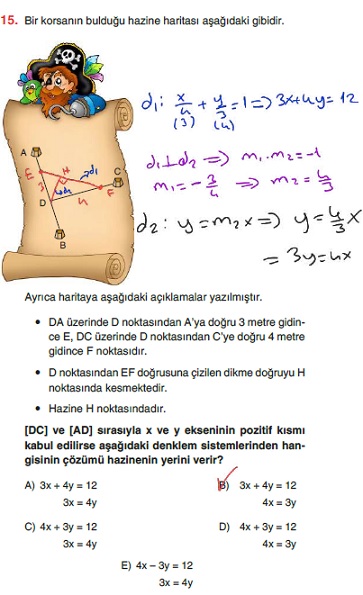 15. Bir korsanın bulduğu hazine haritası aşağıdaki gibidir.
d₁: x/4 + y/3 = 1 => 3x+4y = 12
(3) (4)
d₁⊥d₂ => m₁.m₂=-1
m₁=-3/4 => m₂=4/3
d₂: y=m₂x => y=4/3x
= 3y=4x
A
E
H
d₁
C
3
d₂
D
4
F
B
Ayrıca haritaya aşağıdaki açıklamalar yazılmıştır.
• DA üzerinde D noktasından A'ya doğru 3 metre gidin-
ce E, DC üzerinde D noktasından C'ye doğru 4 metre
gidince F noktasıdır.
• D noktasından EF doğrusuna çizilen dikme doğruyu H
noktasında kesmektedir.
• Hazine H noktasındadır.
[DC] ve [AD] sırasıyla x ve y ekseninin pozitif kısmı
kabul edilirse aşağıdaki denklem sistemlerinden han-
gisinin çözümü hazinenin yerini verir?
A) 3x + 4y = 12
3x = 4y
B) 3x + 4y = 12
4x = 3y
C) 4x + 3y = 12
3x = 4y
D) 4x + 3y = 12
4x = 3y
E) 4x – 3y = 12
3x = 4y